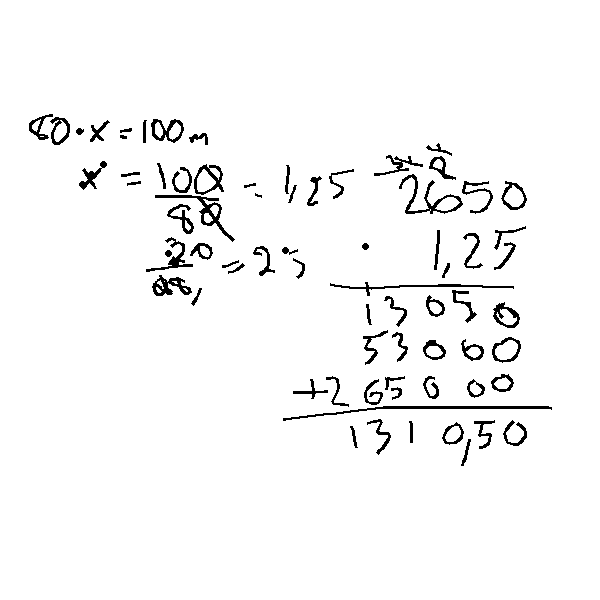 80 · x = 100m
x = 100/80 = 1,25
20 = 25
2650
· 1,25
13050
53000
+265000
1310,50